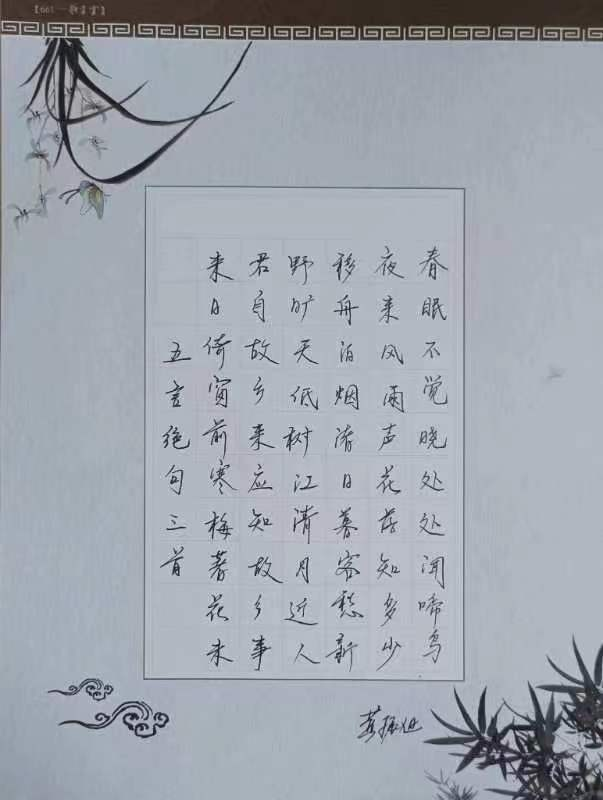 春眠不觉晓处处闻啼鸟
夜来风雨声花落知多少
移舟泊烟渚日暮客愁新
野旷天低树江清月近人
君自故乡来应知故乡事
来日倚窗前寒梅著花未
五言绝句三首